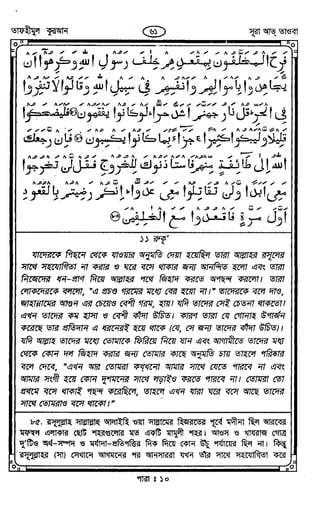 তাফহীমুল কুরআন
৬১
সূরা আত্ তাওবা
فَرِحَ الْمُخَلَّفُونَ بِمَقْعَدِهِمْ خِلٰفَ رَسُولِ اللّٰهِ وَكَرِهُوٓا أَنْ
يُّجَاهِدُوا بِأَمْوَالِهِمْ وَأَنْفُسِهِمْ فِي سَبِيلِ اللّٰهِ وَقَالُوا لَا تَنْفِرُوا
فِي الْحَرِّ قُلْ نَارُ جَهَنَّمَ أَشَدُّ حَرًّا لَوْ كَانُوا يَفْقَهُونَ فَلْيَضْحَكُوا
قَلِيلًا وَّلْيَبْكُوا كَثِيرًا جَزَآءً بِمَا كَانُوا يَكْسِبُونَ فَإِنْ رَّجَعَكَ
اللّٰهُ إِلٰى طَآئِفَةٍ مِّنْهُمْ فَاسْتَأْذَنُوكَ لِلْخُرُوجِ فَقُلْ لَّنْ تَخْرُجُوا
مَعِيَ أَبَدًا وَّلَنْ تُقَاتِلُوا مَعِيَ عَدُوًّا إِنَّكُمْ رَضِيتُمْ بِالْقُعُودِ
أَوَّلَ مَرَّةٍ فَاقْعُدُوا مَعَ الْخٰلِفِينَ
১১ রুকূ'
যাদেরকে পিছনে থেকে যাওয়ার অনুমতি দেয়া হয়েছিল তারা আল্লাহর রসূলের
সাথে সহযোগিতা না করার ও ঘরে বসে থাকার জন্য আনন্দিত হলো এবং তারা
নিজেদের ধন-প্রাণ দিয়ে আল্লাহর পথে জিহাদ করতে অপছন্দ করলো। তারা
লোকদেরকে বললো, "এ প্রচণ্ড গরমের মধ্যে বের হয়ো না।" তাদেরকে বলে দাও,
জাহান্নামের আগুন এর চেয়েও বেশী গরম, হায়! যদি তাদের সেই চেতনা থাকতো!
এখন তাদের কম হাসা ও বেশী কাঁদা উচিত। কারণ তারা যে গোনাহ উপার্জন
করেছে তার প্রতিদান এ ধরনেরই হয়ে থাকে (যে, সে জন্য তাদের কাঁদা উচিত)।
যদি আল্লাহ তাদের মধ্যে তোমাকে ফিরিয়ে নিয়ে যান এবং আগামীতে তাদের মধ্য
থেকে কোন দল জিহাদ করার জন্য তোমার কাছে অনুমতি চায় তাহলে পরিষ্কার
বলে দেবে, "এখন আর তোমরা কখখনো আমার সাথে যেতে পারবে না এবং
আমার সংগী হয়ে কোন দুশমনের সাথে লড়াইও করতে পারবে না। তোমরা তো
প্রথমে বসে থাকাই পছন্দ করেছিলে, তাহলে এখন যারা ঘরে বসে আছে তাদের
সাথে তোমরাও বসে থাকো।"
রসূলুল্লাহ সাল্লাল্লাহু আলাইহি ওয়া সাল্লামের হিজরতের পূর্বে মদীনা ছিল আরবের
মফস্বল এলাকার ছোট শহরগুলোর মত একটি মামুলী শহর। আওস ও খাযরাজ গোত্র
দু'টিও অর্থ-সম্পদ ও মর্যাদা-প্রতিপত্তির দিক দিয়ে কোন উঁচু পর্যায়ের ছিল না। কিন্তু
রসূলুল্লাহ (সা) সেখানে আগমনের পর আনসাররা যখন তাঁর সাথে সহযোগিতা করে
পারা : ১০